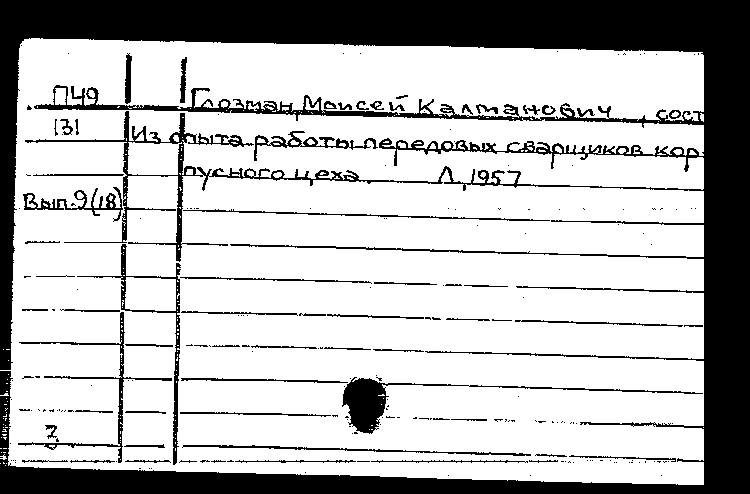 П49 Глозман, Моисей Калманович, сост
131 Из опыта работы передовых сварщиков кор-
пусного цеха. Л, 1957
Вып. 9(18)
3